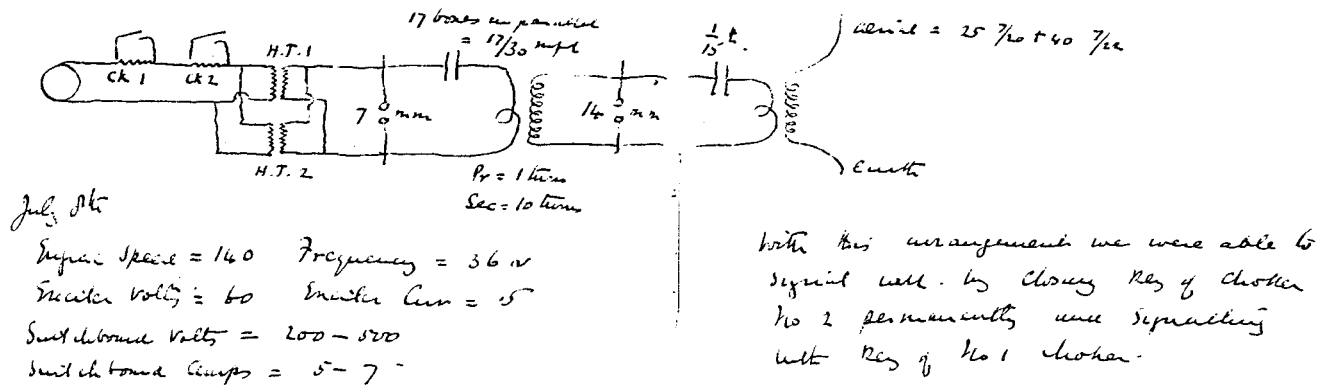 17 boxes in parallel
= 17/30 mfd
1/15 t.
aerial = 25 7/20 + 40 7/22
H.T.1
Ck 1
Ck 2
7 mm
14 mm
H.T.2
Earth
Pr = 1 turn
Sec = 10 turns
July 8th
Engine Speed = 140 Frequency = 36 ~
Exciter Volts = 60 Exciter Curr = 15
Switchboard Volts = 200 – 500
Switchboard Amps = 5 – 7
With this arrangement we were able to
signal well by closing Key of Choker
No 2 permanently and signalling
with Key of No 1 Choker.